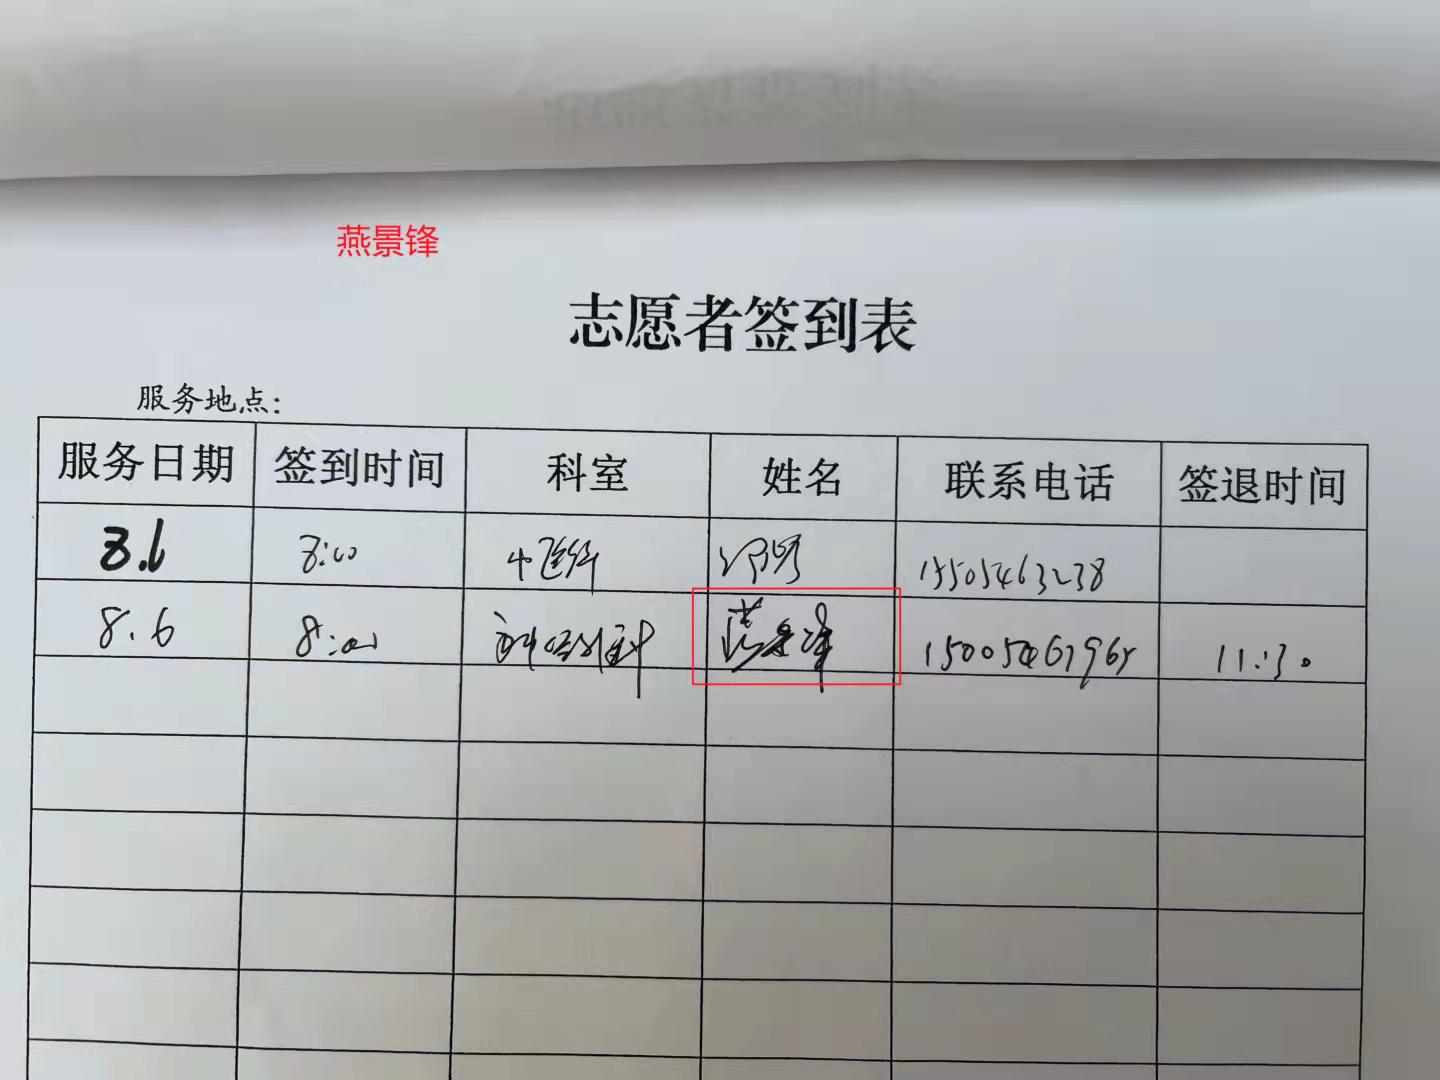 燕景锋
志愿者签到表
服务地点:
服务日期 签到时间 科室 姓名 联系电话 签退时间
8.6 8:00 中医科 15505463238
8.6 8:00 燕景锋 11:30